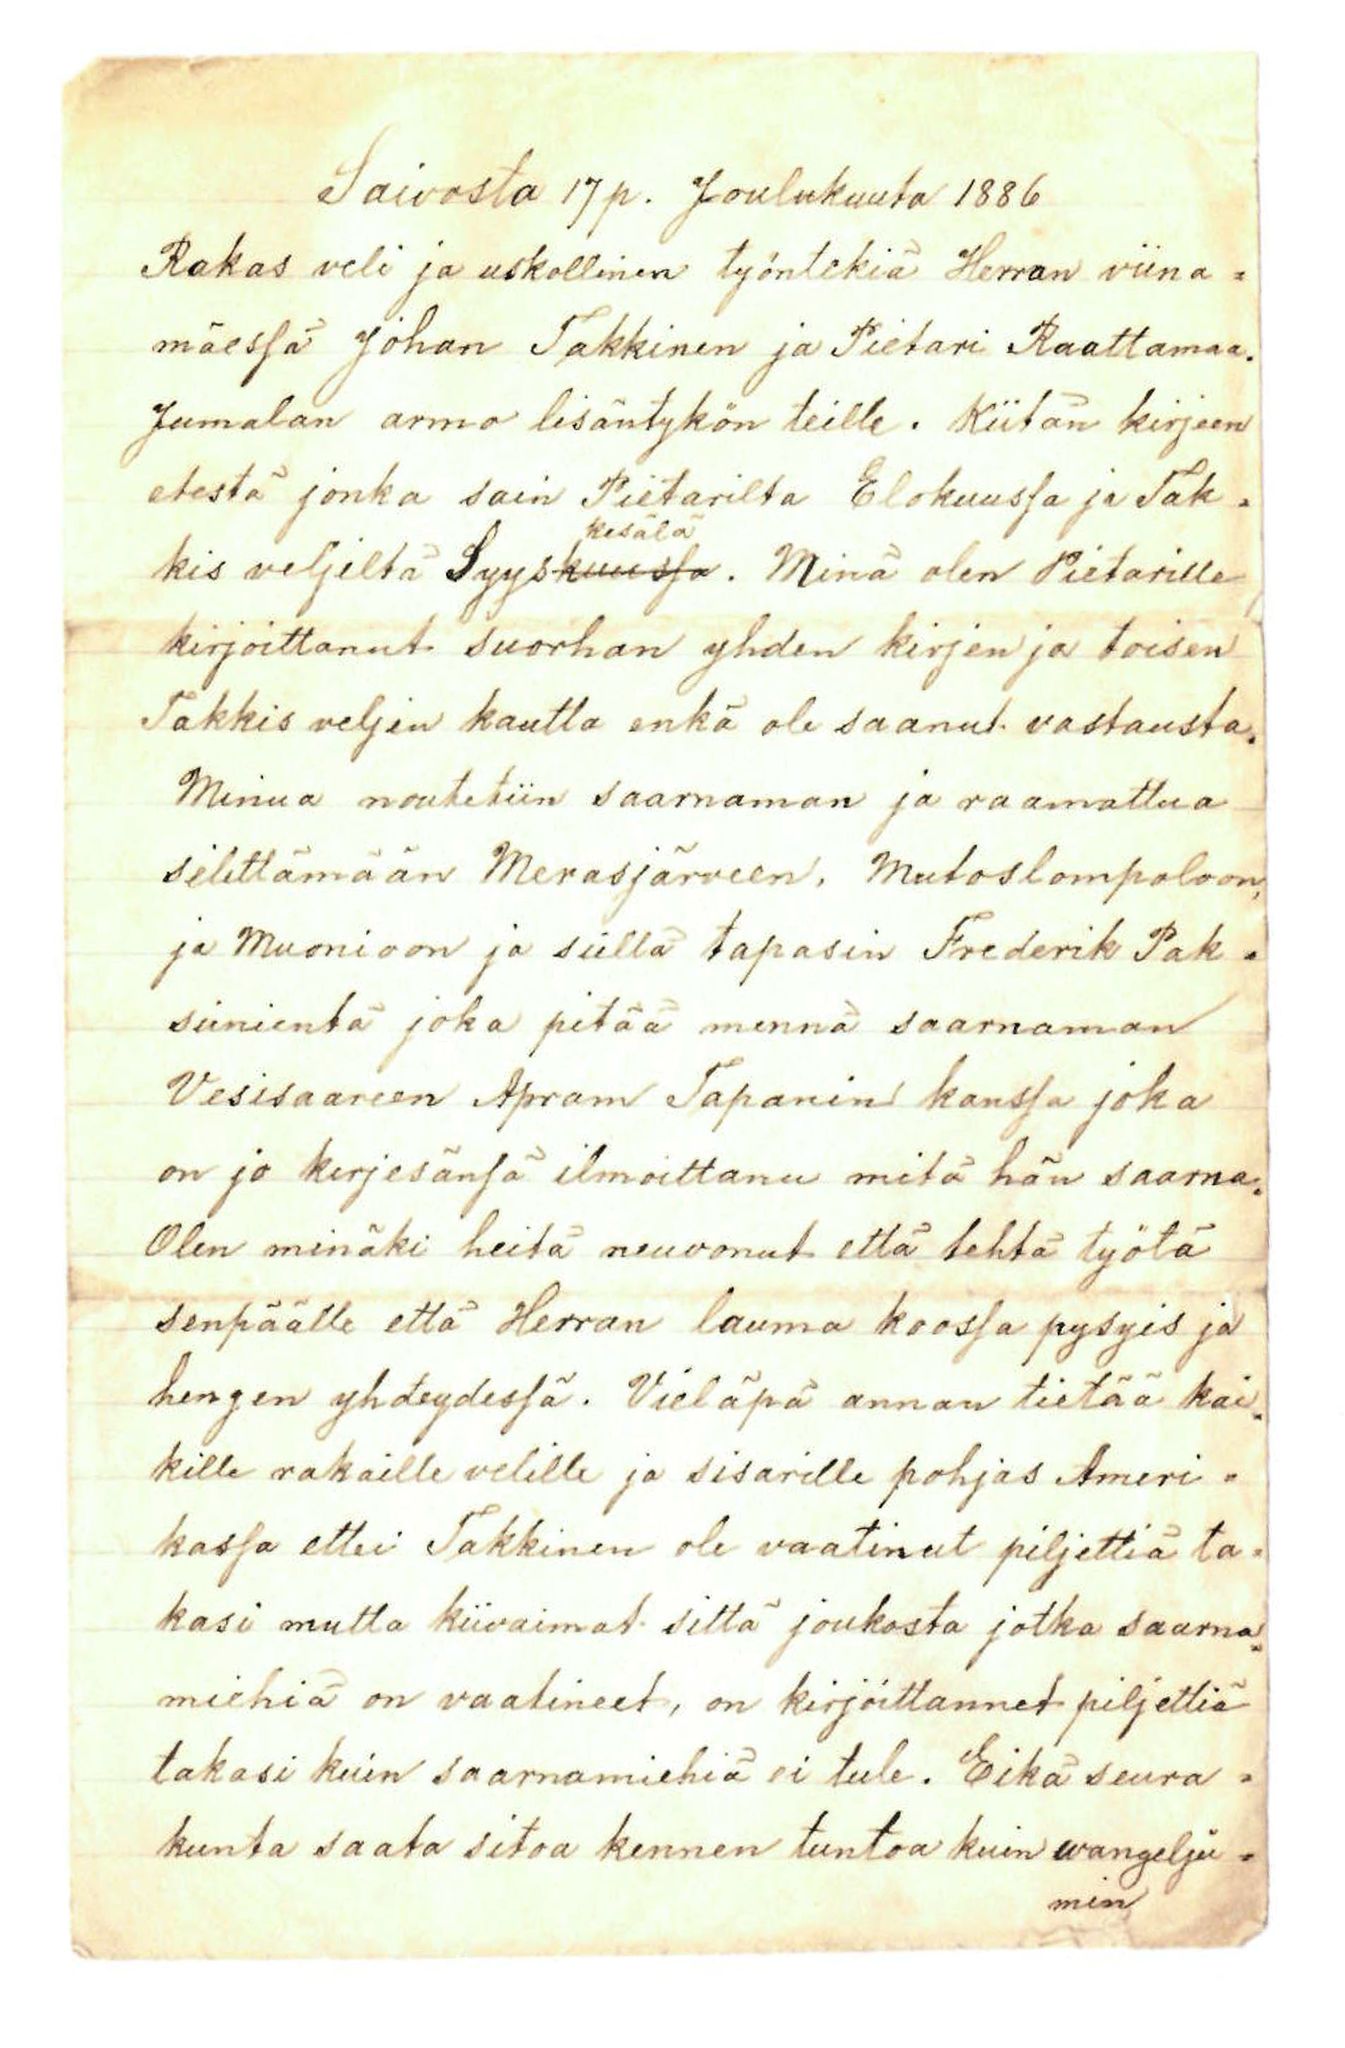 Saivosta 17 p. Joulukuuta 1886
Rakas veli ja uskollinen työntekiä Herran viina=
mäessä Johan Takkinen ja Pietari Raattamaa.
Jumalan armo lisäntykön teille. Kiitän kirjeen
etestä jonka sain Pietarilta Elokuussa ja Tak=
kesälä
kis veljeltä Syyskuussa. Minä olen Pietarille
kirjoittanut suorhan yhden kirjen ja toisen
Takkis veljen kautta enkä ole saanut vastausta.
Minua noutetiin saarnaman ja raamattua
selittämään Merasjärveen, Mutoslompoloon,
ja Muonioon ja siellä tapasin Frederik Pak=
sunientä joka pitää mennä saarnaman
Vesisaareen Apram Tapanin kanssa joka
on jo kirjesänsä ilmoittanu mitä hän saarna.
Olen minäki heitä neuvonut että tehtä työtä
senpäälle että Herran lauma koossa pysyis ja
hengen yhdeydessä. Vieläpä annan tietää kai=
kille rakaille velille ja sisarille pohjas Ameri=
kassa ettei Takkinen ole vaatinut piljettiä ta=
kasi mutta kiivaimat siltä joukosta jotka saarna=
miehiä on vaatineet, on kirjoittannet piljettiä
takasi kuin saarnamiehiä ei tule. Eikä seura=
kunta saata sitoa kennen tuntoa kuin wangelju=
min